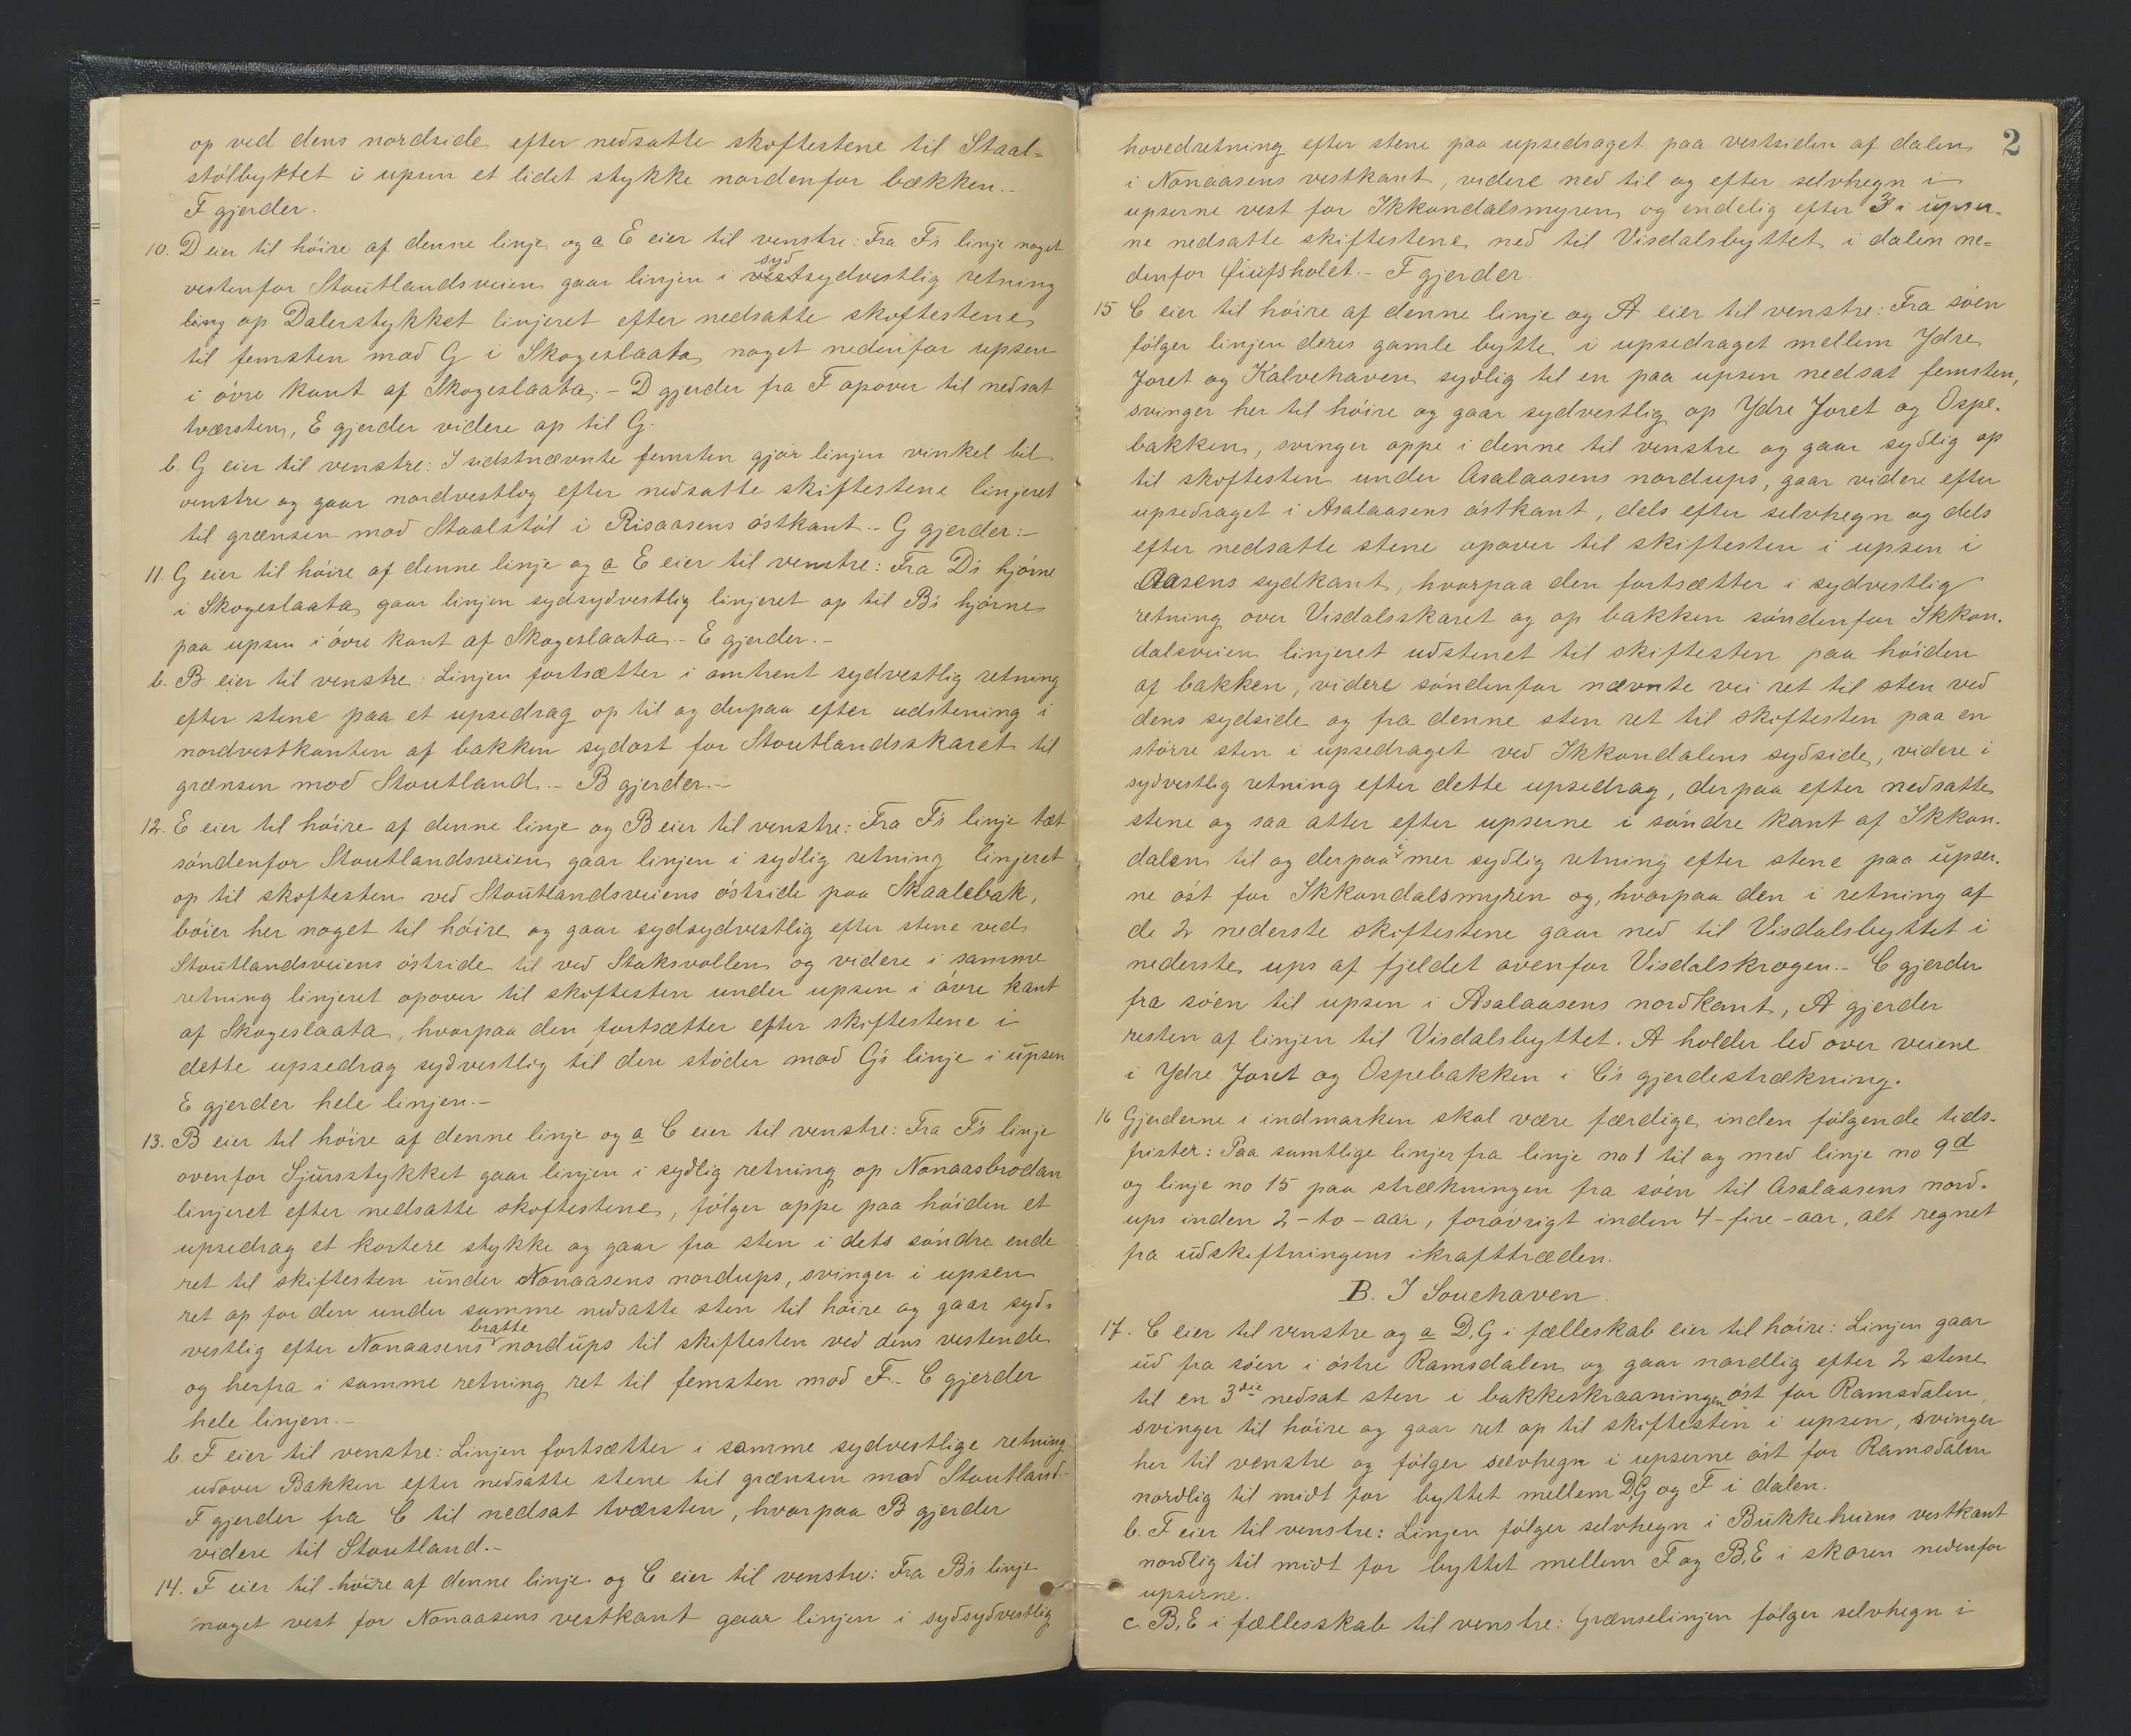 op ved dens nordside efter nedsatte skiftestene til Staal=
stólbyttet i upsen et lidet stykke nordenfor bækken.-
F gjerder.
10. D eier til hóire af denne linje og a E eier til venstre: Fra F's linje noget
syd
vestenfor Stoutlandsveien gaar linjen i vestsydvestlig retning
op Dalerstykket linjeret efter nedsatte skiftestene
til femsten mod G i Skogeslaata noget nedenfor upsen
i óvre kant af Skogeslaata.- D gjerder fra F opover til nedsat
tværsten, E gjerder videre op til G.
b. G eier til venstre: I sidstnævnte femsten gjór linjen vinkel til
venstre og gaar nordvestlig efter nedsatte skiftestene linjeret
til grænsen mod Staalstól i Risaasens óstkant.- G gjerder:-
11. G eier til hóire af denne linje og a E eier til venstre: Fra D's hjórne
i Skogeslaata gaar linjen sydsydvestlig linjeret op til B's hjórne
paa upsen i óvre kant af Skogeslaata.- E gjerder.-
b. B eier til venstre: Linjen fortsætter i omtrent sydvestlig retning
efter stene paa et upsedrag op til og derpaa efter udstening i
nordvestkanten af bakken sydost for Stoutlandsskaret til
grænsen mod Stoutland.- B gjerder.-
12. E eier til hóire af denne linje og B eier til venstre: Fra F's linje tæt
sóndenfor Stoutlandsveien gaar linjen i sydlig retning linjeret
op til skiftesten ved Stoutlandsveiens óstside paa Skaalebak,
bóier her noget til hóire og gaar sydsydvestlig efter stene ved
Stoutlandsveiens óstside til ved Staksvollen og videre i samme
retning linjeret opover til skiftesten under upsen i óvre kant
af Skogeslaata, hvorpaa den fortsætter efter skiftestene i
dette upsedrag sydvestlig til den stóder mod G's linje i upsen
E gjerder hele linjen.-
13. B eier til hóire af denne linje og a C eier til venstre: Fra F's linje
ovenfor Sjursstykket gaar linjen i sydlig retning op Nonaasbrodan
linjeret efter nedsatte skiftestene, fólger oppe paa hóiden et
upsedrag et kortere stykke og gaar fra sten i dets sóndre ende
ret til skiftesten under Nonaasens nordups, svinger i upsen
ret op for den under samme nedsatte sten til hóire og gaar syd=
bratte
vestlig efter Nonaasens nordups til skiftesten ved dens vestende
og herfra i samme retning ret til femsten mod F.- C gjerder
hele linjen.-
b. F eier til venstre: Linjen fortsætter i samme sydvestlige retning
udover Bakken efter nedsatte stene til grænsen mod Stoutland.-
F gjerder fra C til nedsat tværsten, hvorpaa B gjerder
videre til Stoutland.-
14. F eier til hóire af denne linje og C eier til venstre: Fra B's linje
noget vest for Nonaasens vestkant gaar linjen i sydsydvestlig
2
hovedretning efter stene paa upsedraget paa vestsiden af dalen
i Nonaasens vestkant, videre ned til og efter selvhegn i
upserne vest for Ikkondalsmyren og endelig efter 3 i upser=
ne nedsatte skiftestene ned til Visdalsbyttet i dalen ne=
denfor .- F gjerder.
15 C eier til hóire af denne linje og A eier til venstre: Fra sóen
fólger linjen deres gamle bytte i upsedraget mellem Ydre
Joret og Kalvehaven sydlig til en paa upsen nedsat femsten,
svinger her til hóire og gaar sydvestlig op Ydre Joret og Ospe=
bakken, svinger oppe i denne til venstre og gaar sydlig op
til skiftesten under Asalaasens nordups, gaar videre efter
upsedraget i Asalaasens óstkant, dels efter selvhegn og dels
efter nedsatte stene opover til skiftesten i upsen i
Aasens sydkant, hvorpaa den fortsætter i sydvestlig
retning over Visdalsskaret og op bakken sóndenfor Ikkon=
dalsveien linjeret udstenet til skiftesten paa hóiden
af bakken, videre sóndenfor nævnte vei ret til sten ved
dens sydside og fra denne sten ret til skiftesten paa en
stórre sten i upsedraget ved Ikkondalens sydside, videre i
sydvestlig retning efter dette upsedrag, derpaa efter nedsatte
stene og saa atter efter upserne i sóndre kant af Ikkon=
dalen til og derpaa i mer sydlig retning efter stene paa upser=
ne óst for Ikkondalsmyren og, hvorpaa den i retning af
de 2 nederste skiftestene gaar ned til Visdalsbyttet i
nederste ups af fjeldet ovenfor Visdalskrogen.- C gjerder
fra sóen til upsen i Asalaasens nordkant, A gjerder
resten af linjen til Visdalsbyttet. A holder led over veiene
i Ydre Joret og Ospebakken i C's gjerdestrækning.
16 Gjerderne i indmarken skal være færdige inden fólgende tids=
frister: Paa samtlige linjer fra linje no 1 til og med linje no 9d
og linje no 15 paa strækningen fra sóen til Asalaasens nord=
ups inden 2-to-aar, foróvrigt inden 4-fire-aar, alt regnet
fra udskiftningens ikrafttræden.
B. I Souehaven.
17. C eier til venstre og a D,G i fælleskab eier til hóire: Linjen gaar
ud fra sóen i óstre Ramsdalen og gaar nordlig efter 2 stene
til en 3die nedsat sten i bakkeskraaningen óst for Ramsdalen,
svinger til hóire og gaar ret op til skiftesten i upsen, svinger
her til venstre og fólger selvhegn i upserne óst for Ramsdalen
nordlig til midt for byttet mellem D,G og F i dalen.
b. F eier til venstre: Linjen fólger selvhegn i Bukkehuens vestkant
nordlig til midt for byttet mellem F og B,E i skaren nedenfor
upserne.
c. B,E i fællesskab til venstre: Grænselinjen fólger selvhegn i